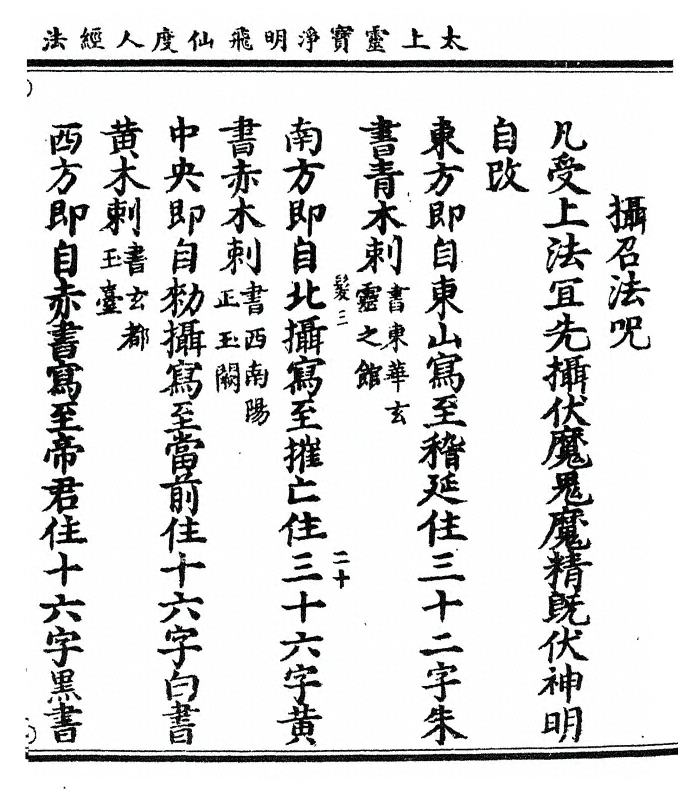 太上靈寶淨明飛仙度人經法
攝召法呪
凡受上法冝先攝伏魔鬼魔精旣伏神明
自改
東方即自東山寫至稽延住三十二字朱
書青木刺書東華玄靈之館
髮三 二十
南方即自北攝寫至摧亡住三十六字黄
書赤木刺書西南陽正玉闕
中央即自勑攝寫至當前住十六字白書
黄木刺書玄都玉臺
西方即自赤書寫至帝君住十六字黑書